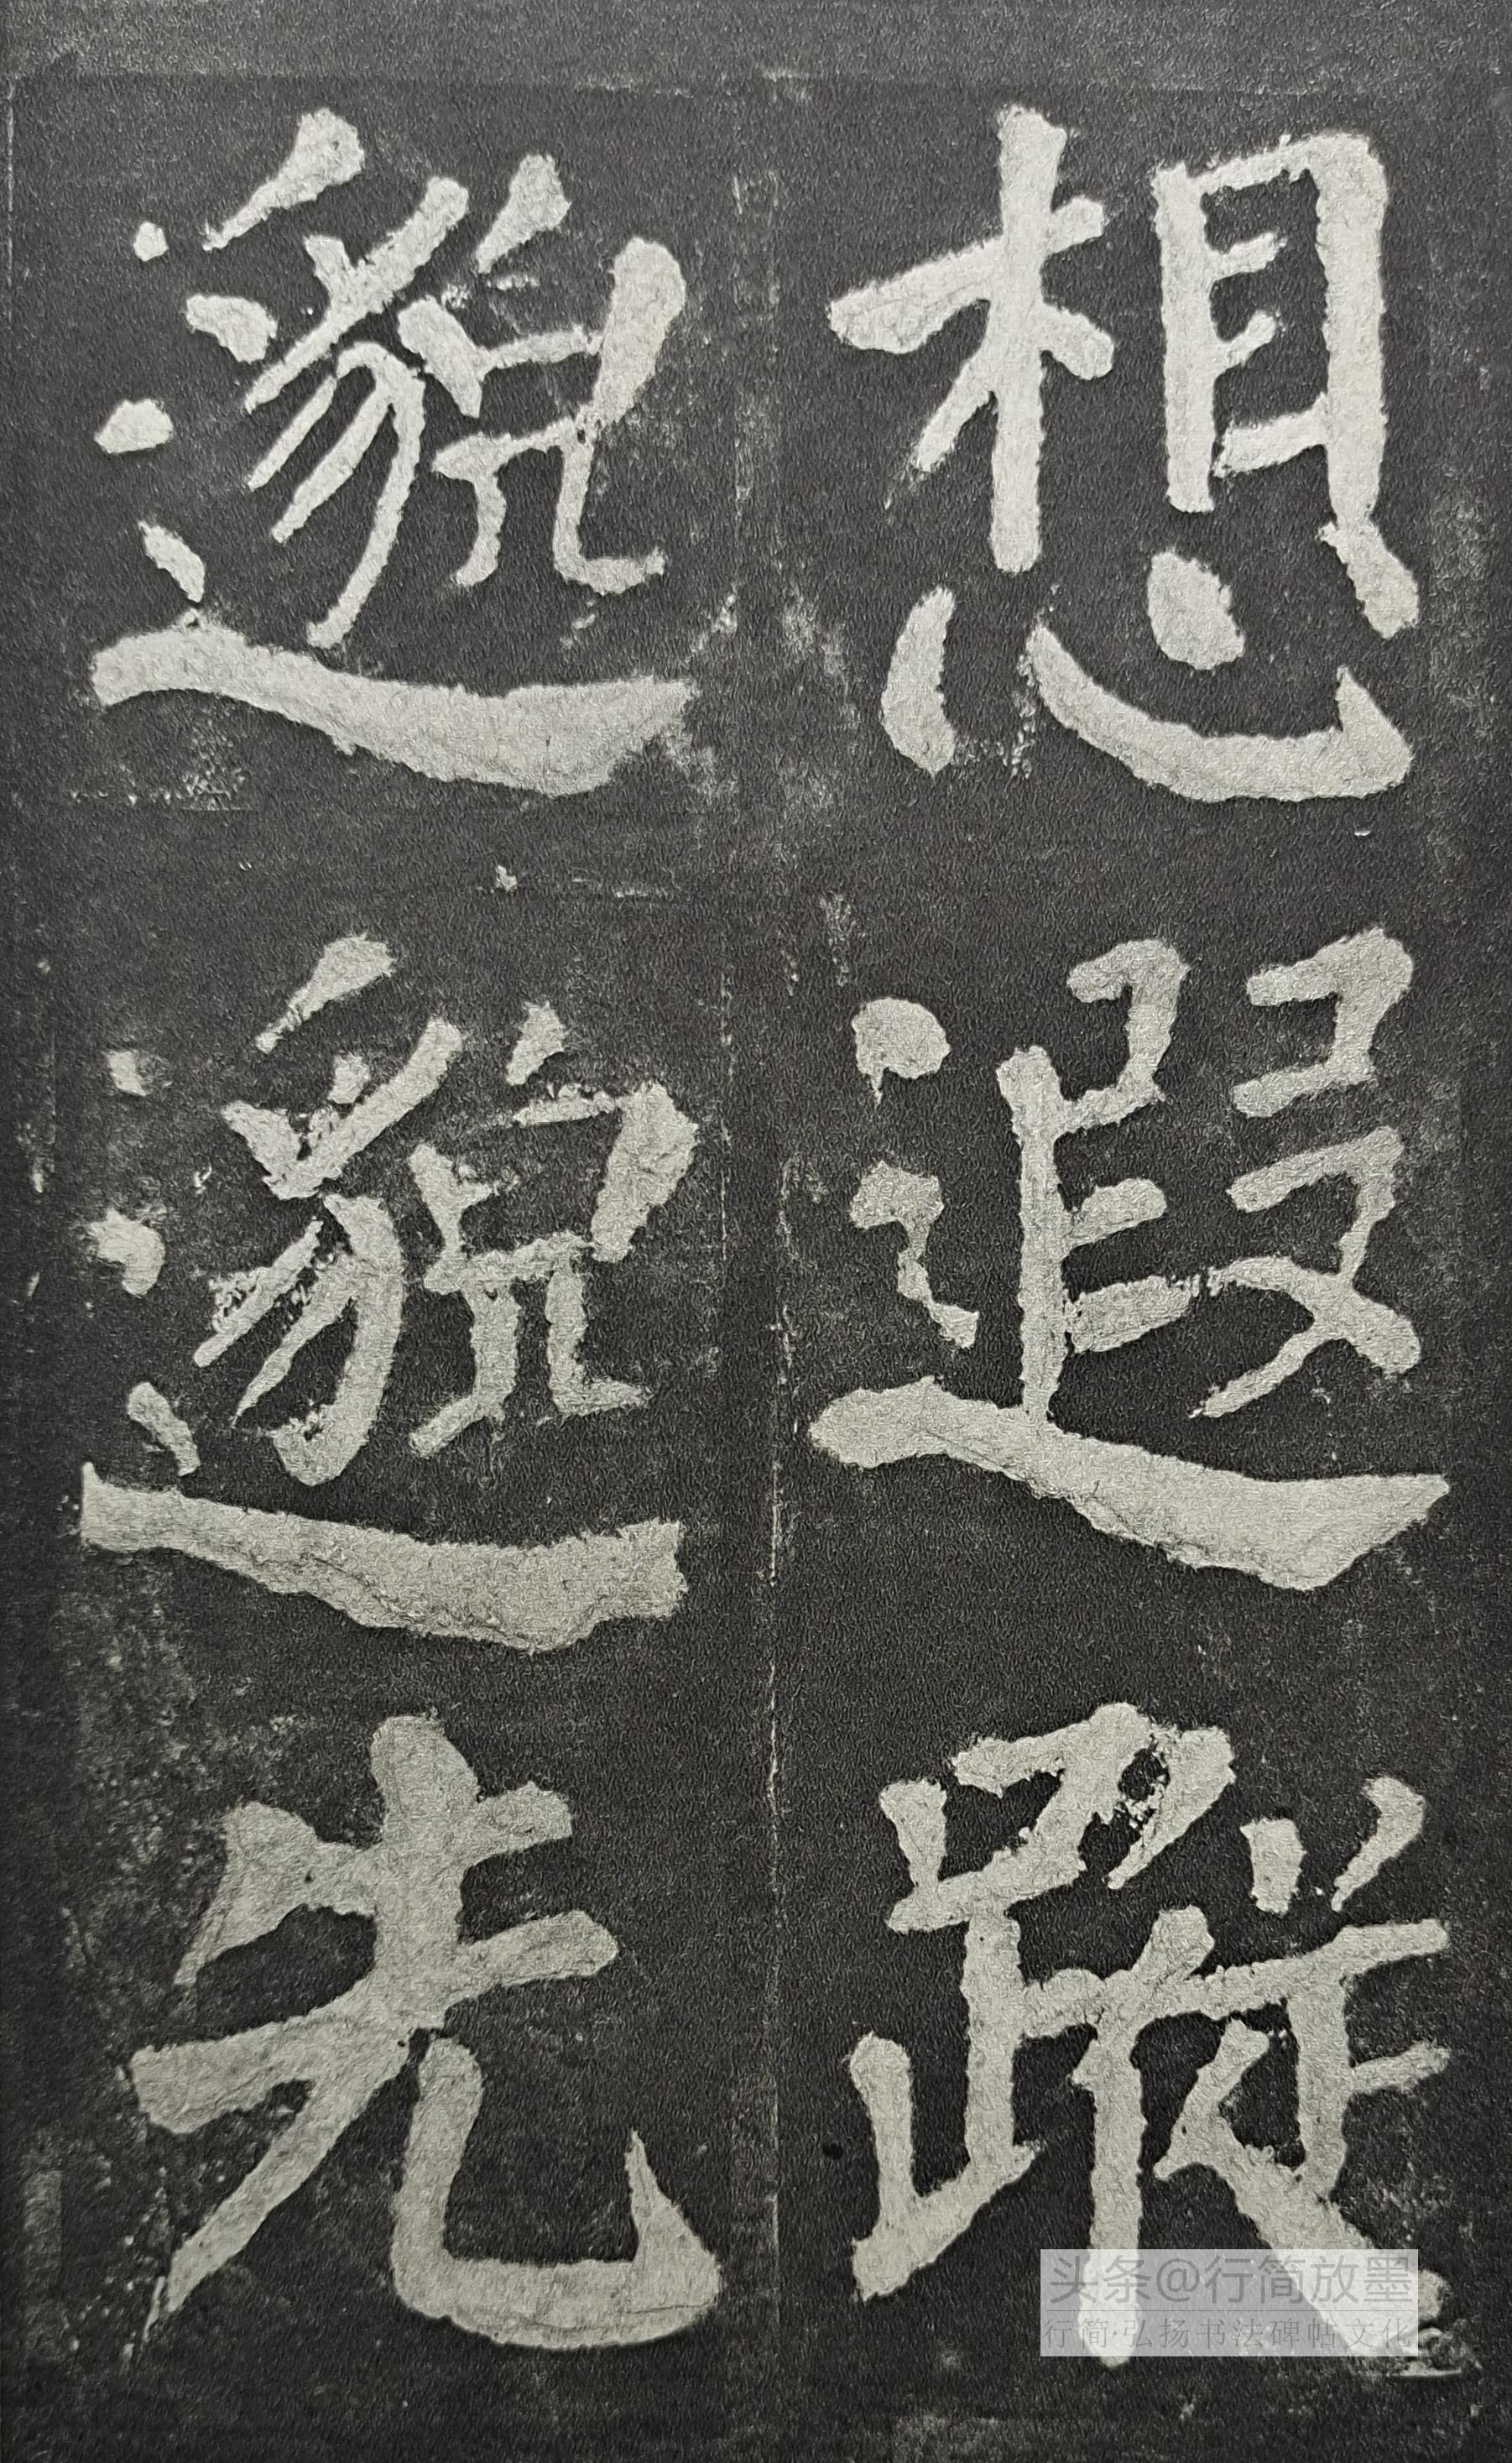 想遐蹤
邈邈先
头条@行简放墨
行简·弘扬书法碑帖文化